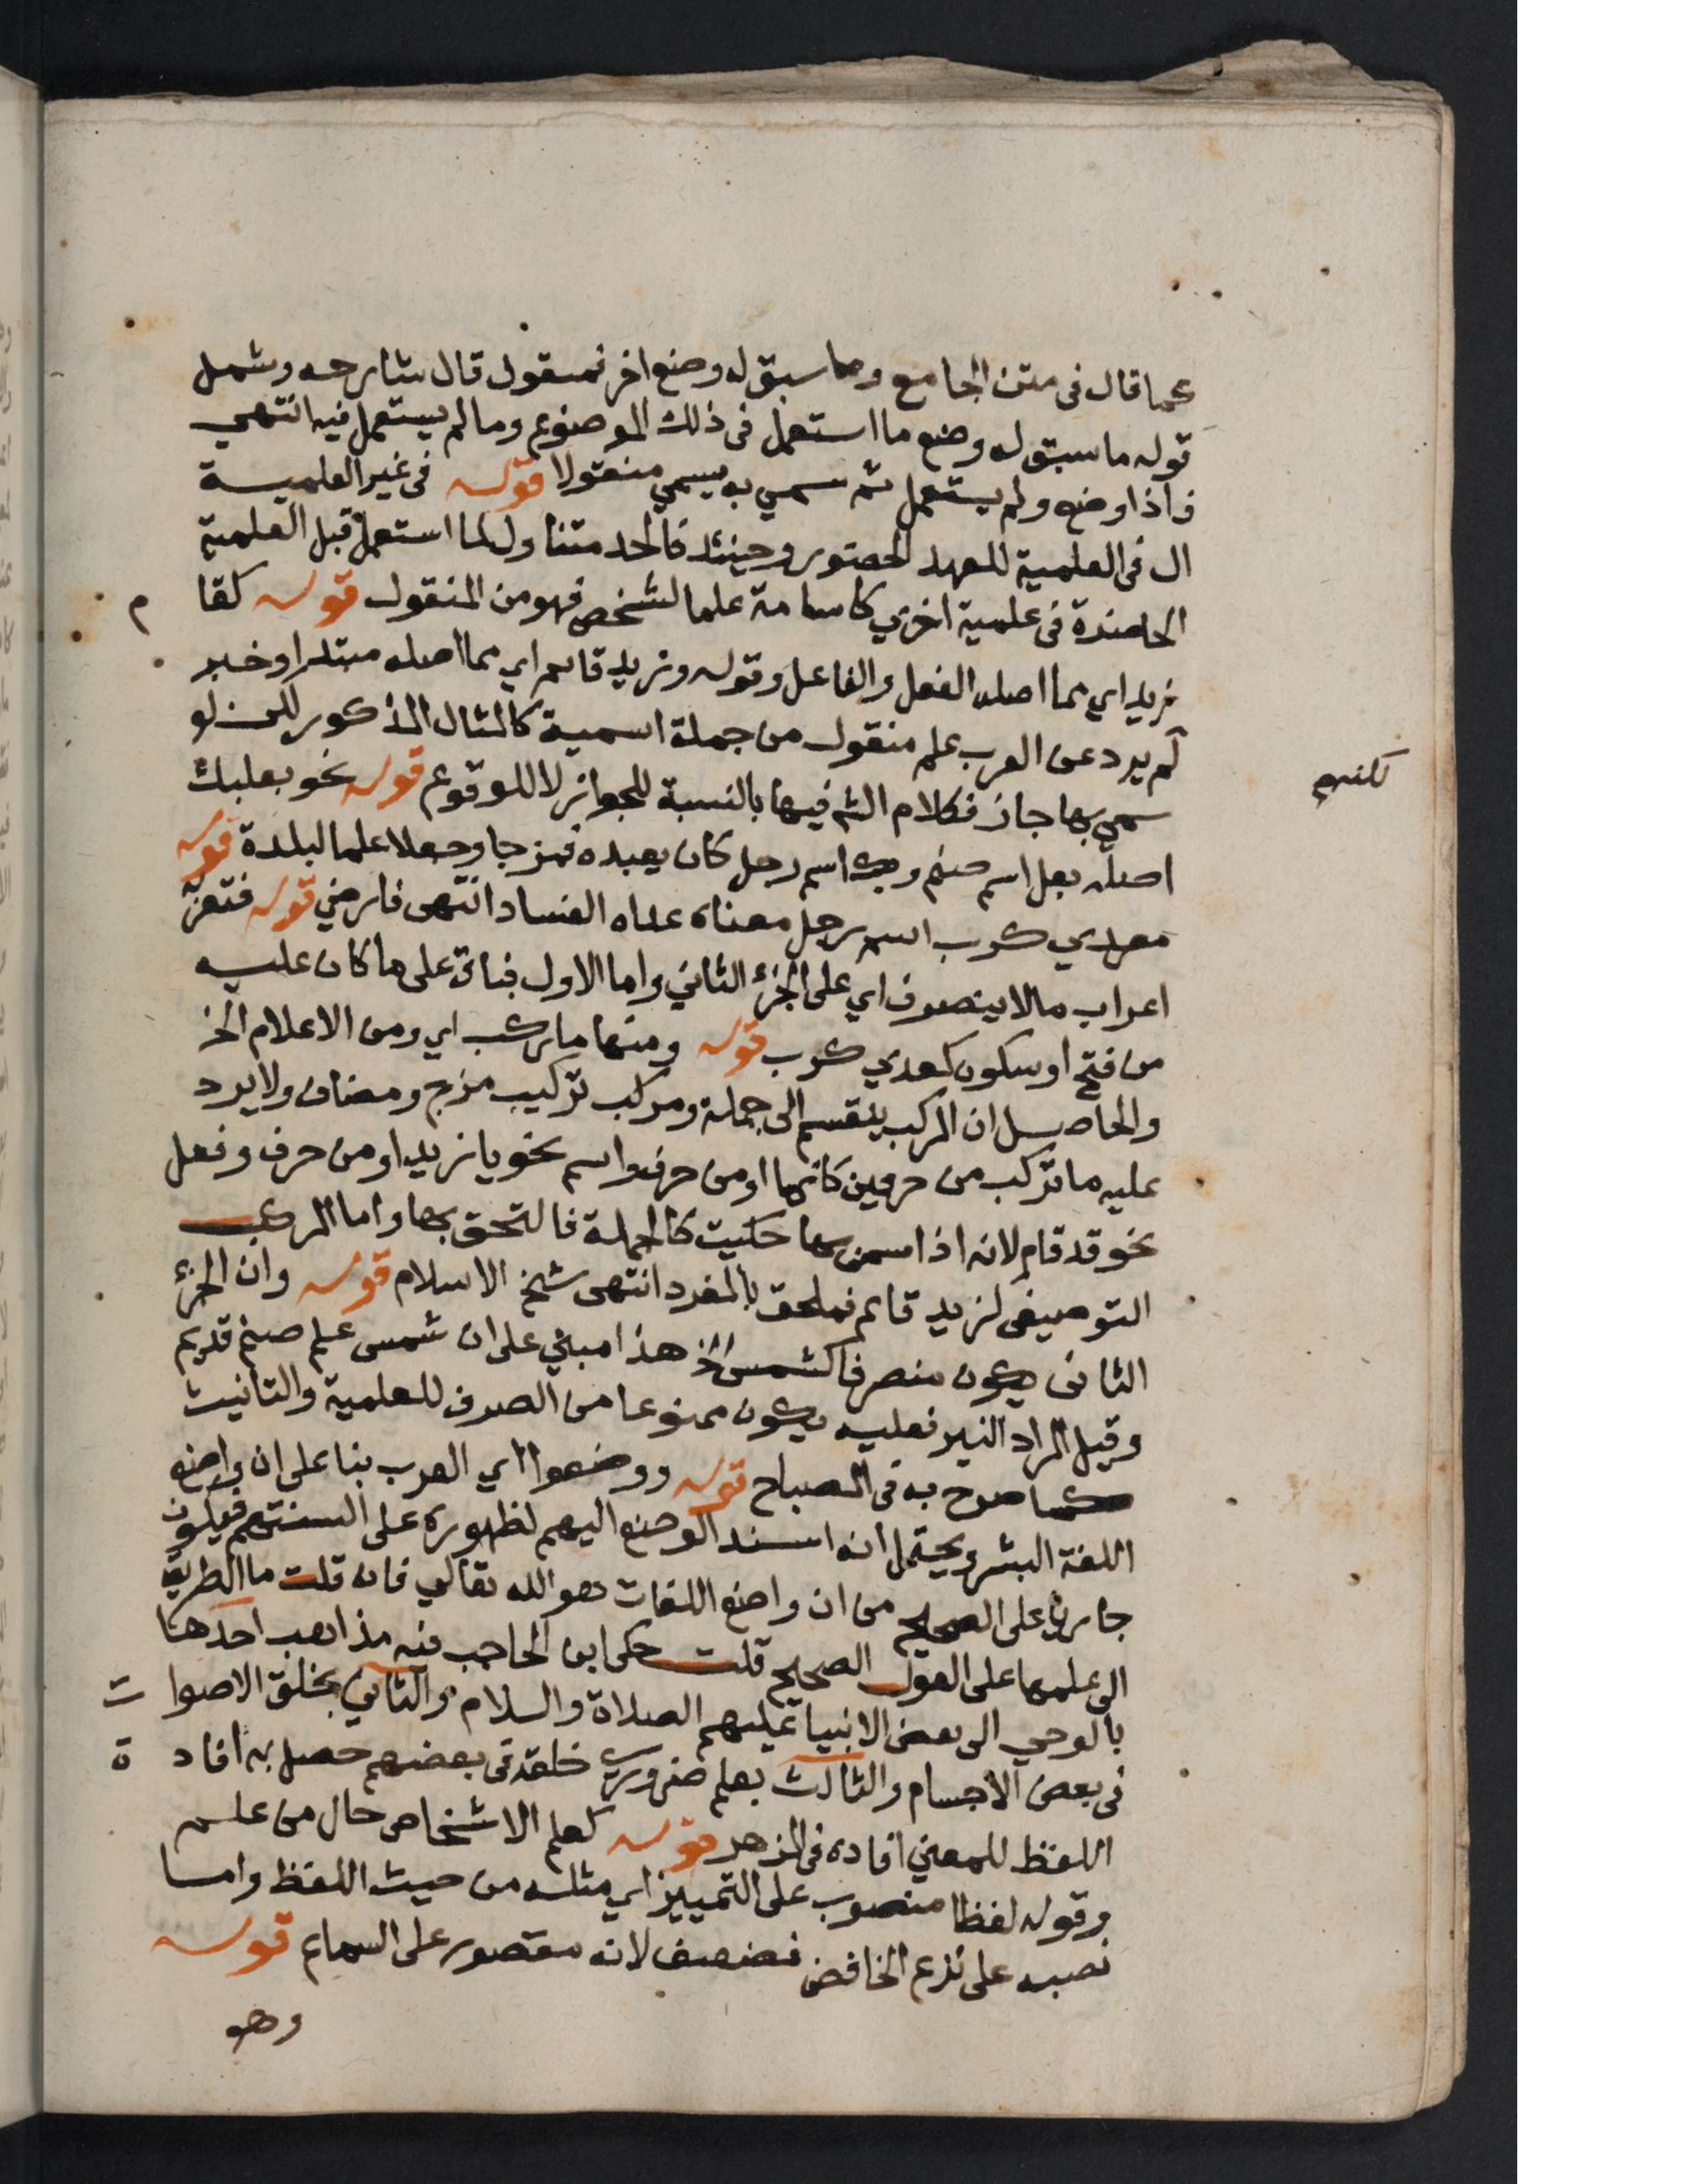 عما قال فى متن الجامع وما سبق له وضع اخر فمنقول قال شارحه وشمل
قوله ما سبق له وضع ما استعمل فى ذلك الموضوع وما لم يستعمل فيه انتهي
فاذا وضع ولم يستعمل ثم سمي به يسمي منقولا قوله فى غير العلمية
ال فى العلمية للعهد الحضورو وحينئذ فالحد متناول لما استعمل قبل العلمية
الحاضرة فى علمية اخري كاسامة علما لشخص فهو من المنقول قوله كقا م
زيد اي مما اصله الفعل والفاعل وقوله وزيد قايم اي مما اصله مبتدا وخبر
لم يرد عن العرب علم منقول من جملة اسمية كالمثال المذكور لكن لو
لكنهم
سمي بها جاز فكلام الشم فيها بالنسبة للجوائز لا للوقوع قوله نحو بعلبك
اصله بعل اسم صنم وبك اسم رجل كان يعبده فمزجا وجعلا علما لبلدة قوله
معدي كرب اسم رجل معناه عداه الفساد انتهى فارضي قوله فتعرب
اعراب ما لا ينصرف اي على الجزء الثاني واما الاول فباق على ما كان عليه
من فتح او سكون كمعدي كرب قوله ومنها ما ركب اي ومن الاعلام الخ
والحاصل ان المركب ينقسم الى جملة ومركب تركيب مزج ومضاف ولا يرد
عليه ما تركب من حرفين كانما او من حرف واسم نحو يا زيد او من حرف وفعل
نحو قد قام لانه اذا سمي بها حكيت كالجملة فالتحق بها واما المركب
التوصيفى لزيد قايم فملحق بالمفرد انتهى شيخ الاسلام قوله وان الجزء
الثانى يكون منصرفا كشمس الخ هذا مبني على ان شمس علم صنم قديم
وقيل المراد النير فعليه يكون ممنوعا من الصرف للعلمية والتانيث
كما صرح به فى المصباح قوله ووضعوا اي العرب بنا على ان واضع
اللغة البشر ويحتمل انه اسند الوضع اليهم لظهوره على السنتهم فيكون
جاريا على الصحيح من ان واضع اللغات هو الله تعالي فان قلت ما الطريق
الى علمها على القول الصحيح قلت حكى ابن الحاجب فيه مذاهب احدها
بالوحي الى بعض الانبيا عليهم الصلاة والسلام والثاني بخلق الاصوا ت
فى بعض الاجسام والثالث بعلم ضروري خلقه فى بعضهم حصل به افاد ة
اللفظ للمعني افاده فى المزهر قوله كعلم الاشخاص حال من علم
وقوله لفظا منصوب على التمييز اي مثله من حيث اللفظ واما
نصبه على نزع الخافض فضعيف لانه مقصور على السماع قوله
وهو